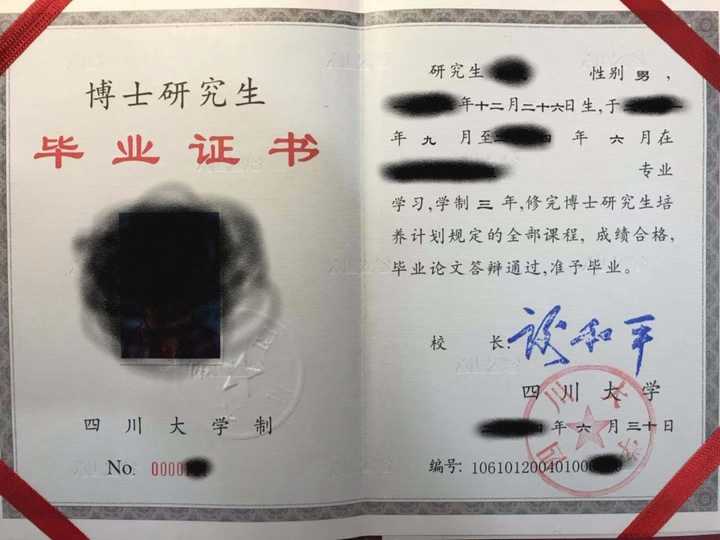 博士研究生
毕业证书
四川大学制
No. 0000
研究生 性别 男，
年十二月二十六日生,于
年 九 月至 年 六 月在
专业
学习,学制 三 年,修完博士研究生培
养计划规定的全部课程, 成绩合格,
毕业论文答辩通过,准予毕业。
校 长: 谢和平
四川大学
年六月三十日
编号: 10610120040100